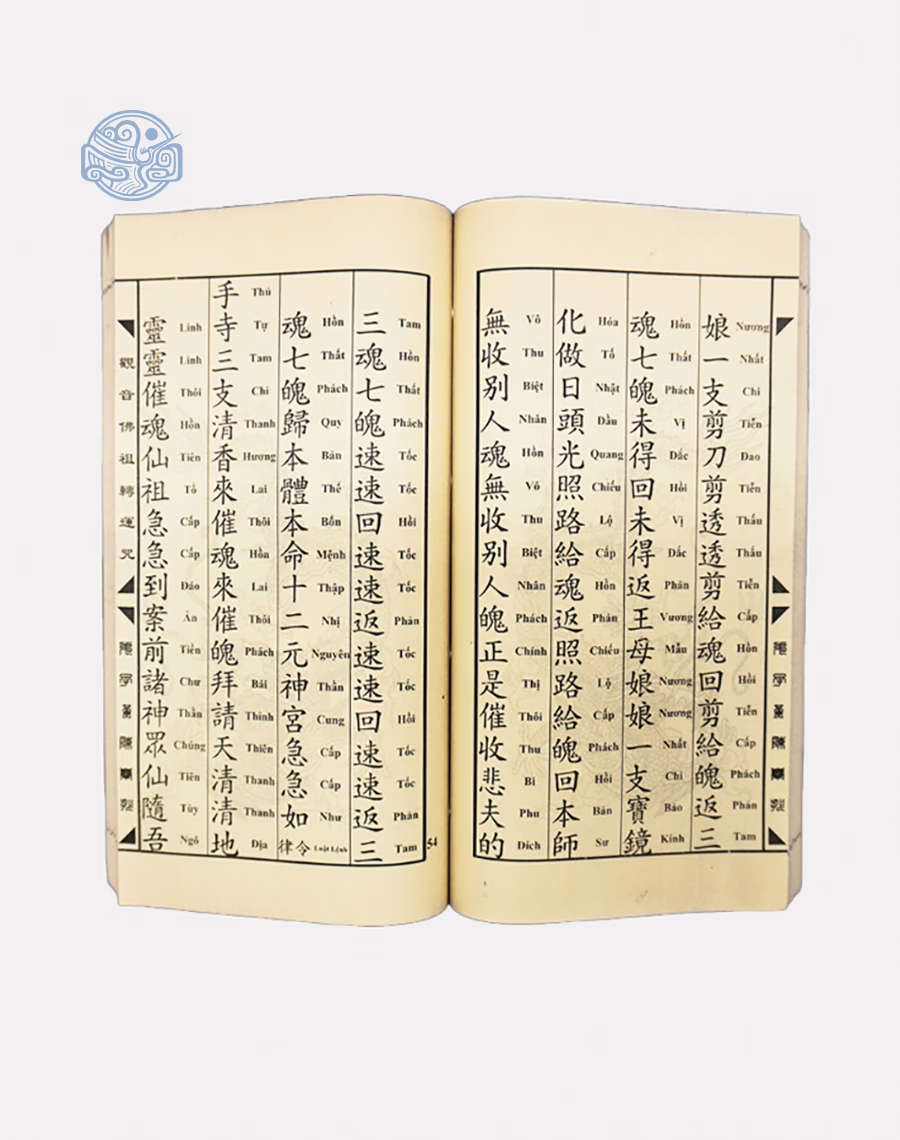 娘一支剪刀剪透透剪給魂回剪給魄返三
Nương Nhất Chi Tiễn Dao Tiễn Thấu Thấu Tiễn Cấp Hồn Hồi Tiễn Cấp Phách Phản Tam
魂七魄未得回未得返王母娘娘一支寶鏡
Hồn Thất Phách Vị Đắc Hồi Vị Đắc Phản Vương Mẫu Nương Nương Nhất Chi Bảo Kính
化做日頭光照路給魂返照路給魄回本師
Hóa Tố Nhật Đầu Quang Chiếu Lộ Cấp Hồn Phản Chiếu Lộ Cấp Phách Hồi Bản Sư
無收別人魂無收別人魄正是催收悲夫的
Vô Thu Biệt Nhân Hồn Vô Thu Biệt Nhân Phách Chính Thị Thôi Thu Bi Phu Đích
54
三魂七魄速速回速速返速速回速速返三
Tam Hồn Thất Phách Tốc Tốc Hồi Tốc Tốc Phản Tốc Tốc Hồi Tốc Tốc Phản Tam
魂七魄歸本體本命十二元神宮急急如律令
Hồn Thất Phách Quy Bản Thể Bổn Mệnh Thập Nhị Nguyên Thần Cung Cấp Cấp Như Luật Lệnh
手寺三支清香來催魂來催魄拜請天清清地
Thủ Tự Tam Chi Thanh Hương Lai Thôi Hồn Lai Thôi Phách Bái Thỉnh Thiên Thanh Thanh Địa
靈靈催魂仙祖急急到案前諸神眾仙隨吾
Linh Linh Thôi Hồn Tiên Tổ Cấp Cấp Đáo Án Tiền Chư Thần Chúng Tiên Tùy Ngô
觀音佛祖轉運咒